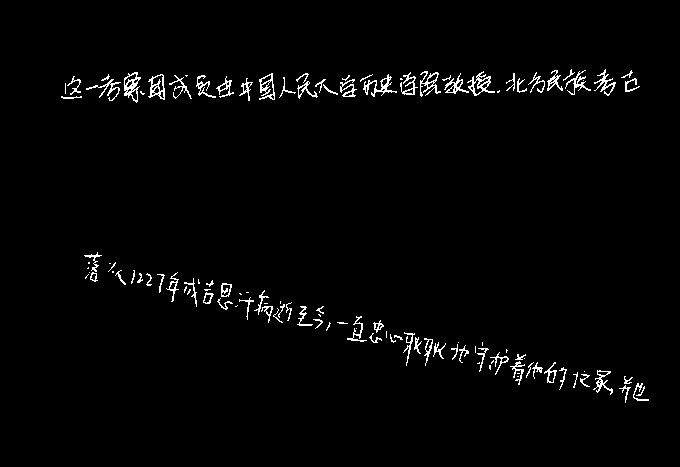 这一考察团成员由中国人民大学历史学院教授、北方民族考古
落从1227年成吉思汗病逝至今,一直忠心耿耿地守护着他的陵寝,并也